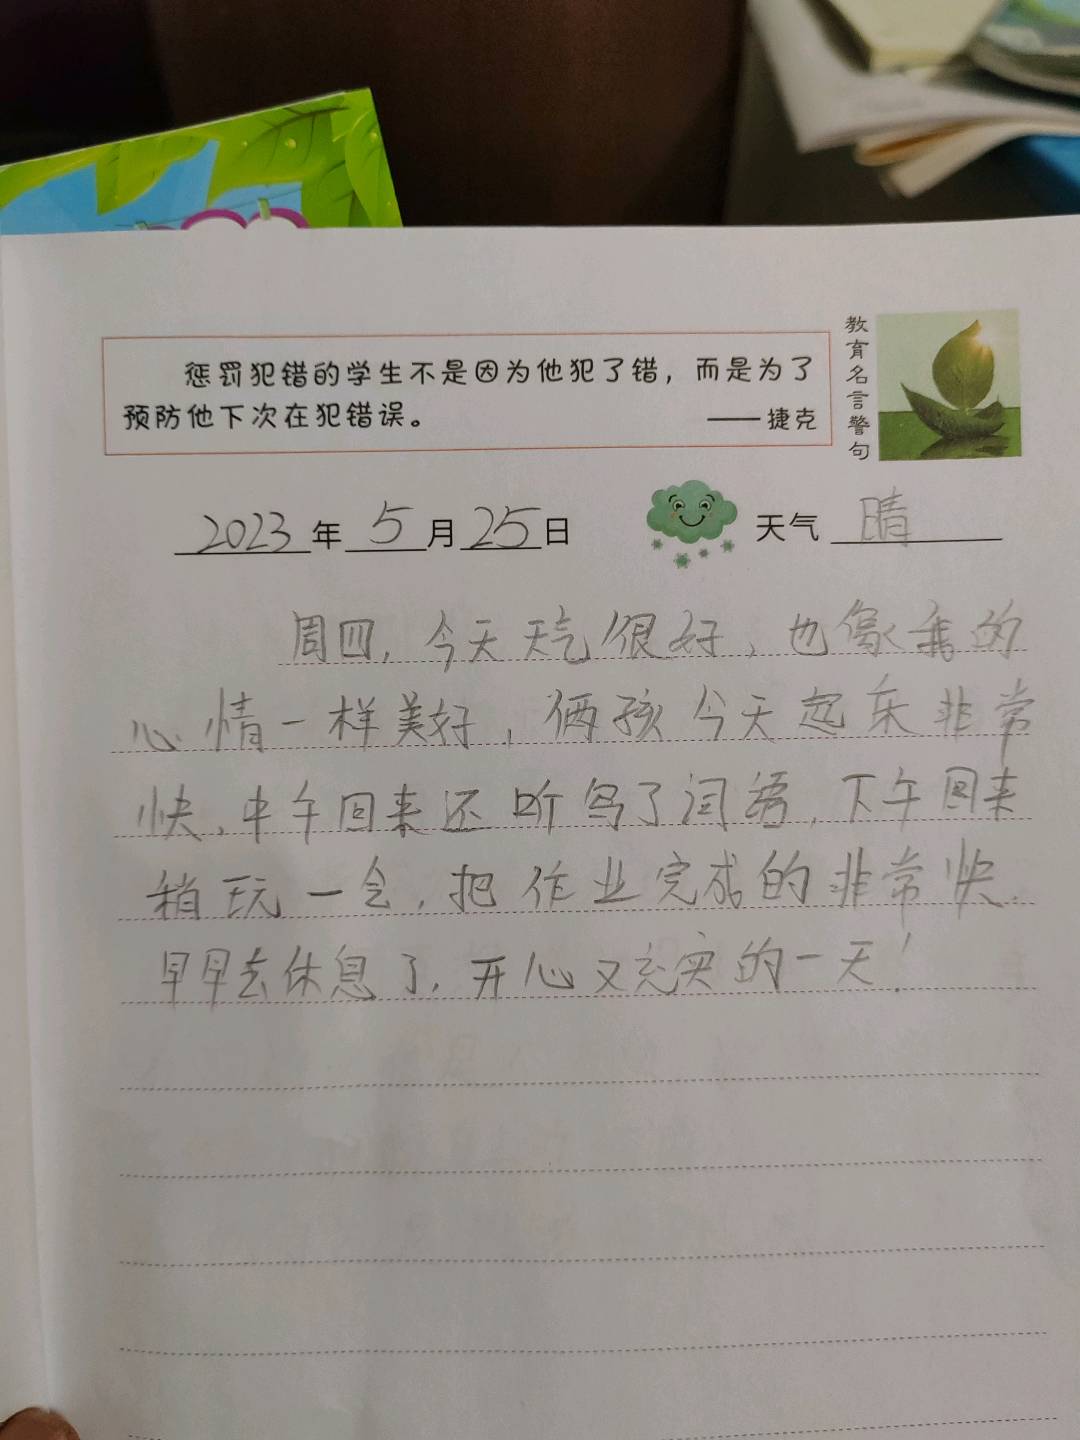 惩罚犯错的学生不是因为他犯了错，而是为了
预防他下次在犯错误。 ——捷克
教育名言警句
2023年5月25日 天气 晴
周四，今天天气很好，也像我的
心情一样美好，俩孩今天起床非常
快，中午回来还听写了词语，下午回来
稍玩一会，把作业完成的非常快。
早早去休息了，开心又充实的一天！